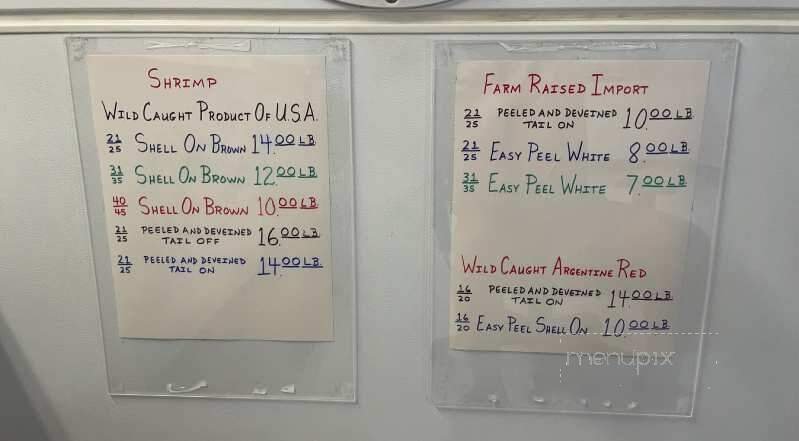 SHRIMP
WILD CAUGHT PRODUCT OF U.S.A.
21/25 SHELL ON BROWN 14.00 LB.
31/35 SHELL ON BROWN 12.00 LB.
40/45 SHELL ON BROWN 10.00 LB.
21/25 PEELED AND DEVEINED TAIL OFF 16.00 LB.
21/25 PEELED AND DEVEINED TAIL ON 14.00 LB.
FARM RAISED IMPORT
21/25 PEELED AND DEVEINED TAIL ON 10.00 LB.
21/25 EASY PEEL WHITE 8.00 LB.
31/35 EASY PEEL WHITE 7.00 LB.
WILD CAUGHT ARGENTINE RED
16/20 PEELED AND DEVEINED TAIL ON 14.00 LB.
16/20 EASY PEEL SHELL ON 10.00 LB.
menupix